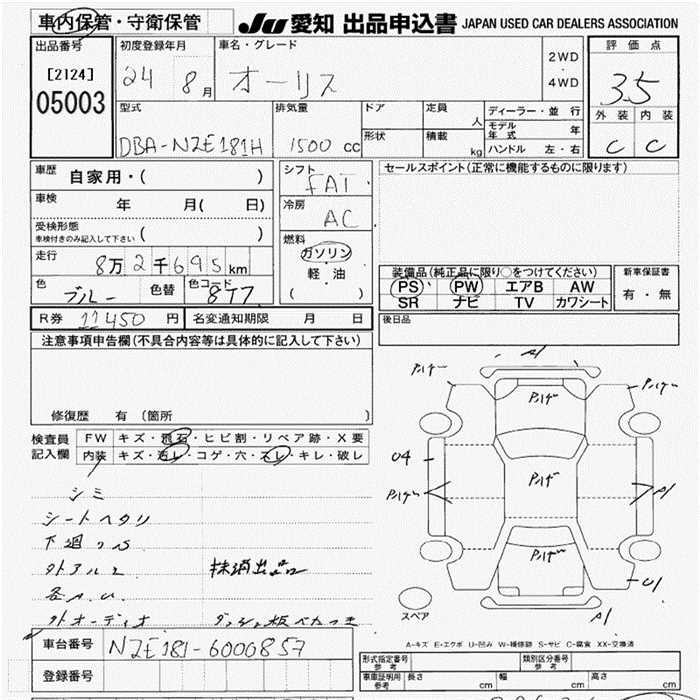 車内保管・守衛保管 JU 愛知 出品申込書 JAPAN USED CAR DEALERS ASSOCIATION
出品番号 初度登録年月 車名・グレード 評価点
[2124] 24 8月 オーリス 2WD・4WD 3.5
05003 外装 内装
C C
型式 排気量 ドア 定員 人 ディーラー・並行
モデル年式 年
DBA-NZE181H 1500 cc 形状 積載 kg ハンドル 左・右
車歴 自家用・( ) シフト FAT セールスポイント(正常に機能するものに限ります)
車検 年 月( 日) 冷房 AC
受検形態
車検付きのみ記入して下さい ( )
燃料
走行 8万2千695km ガソリン
軽油
( )
装備品(純正品に限り○をつけてください) 新車保証書
PS PW エアB AW 有・無
SR ナビ TV カワシート
色 ブルー 色替 色コード 8T7
R券 11450円 名変通知期限 月 日 後日品
注意事項申告欄(不具合内容等は具体的に記入して下さい)
修復歴 有(箇所 )
検査員 FW キズ・飛石・ヒビ割・リペア跡・X要
記入欄 内装 キズ・汚レ・コゲ・穴・スレ・キレ・破レ
シミ
シートヘタリ
下廻りS
外アルミ 抹消出品
各A.U.
外オーディオ ダッシュ板ベタつき
A1
04
A1
U1
A1
スペア
A-キズ E-エクボ U-凹み W-補修跡 S-サビ C-腐食 XX-交換済
車台番号 NZE181-6000857
登録番号
形式指定番号 参考 類別区分番号 参考
車庫証明用 参考 長さ cm 幅 cm 高さ cm